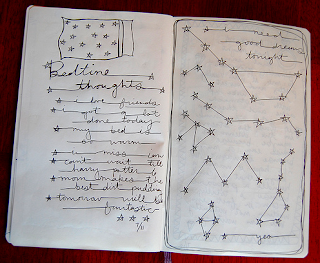 Bedtime
thoughts
i love friends
i got a lot
done today
my bed is
so warm
i miss
cant wait till
harry potter
mom makes the
best dirt pudding
tomorrow will be
fantastic
7/11
i need
good dreams
tonight
yea